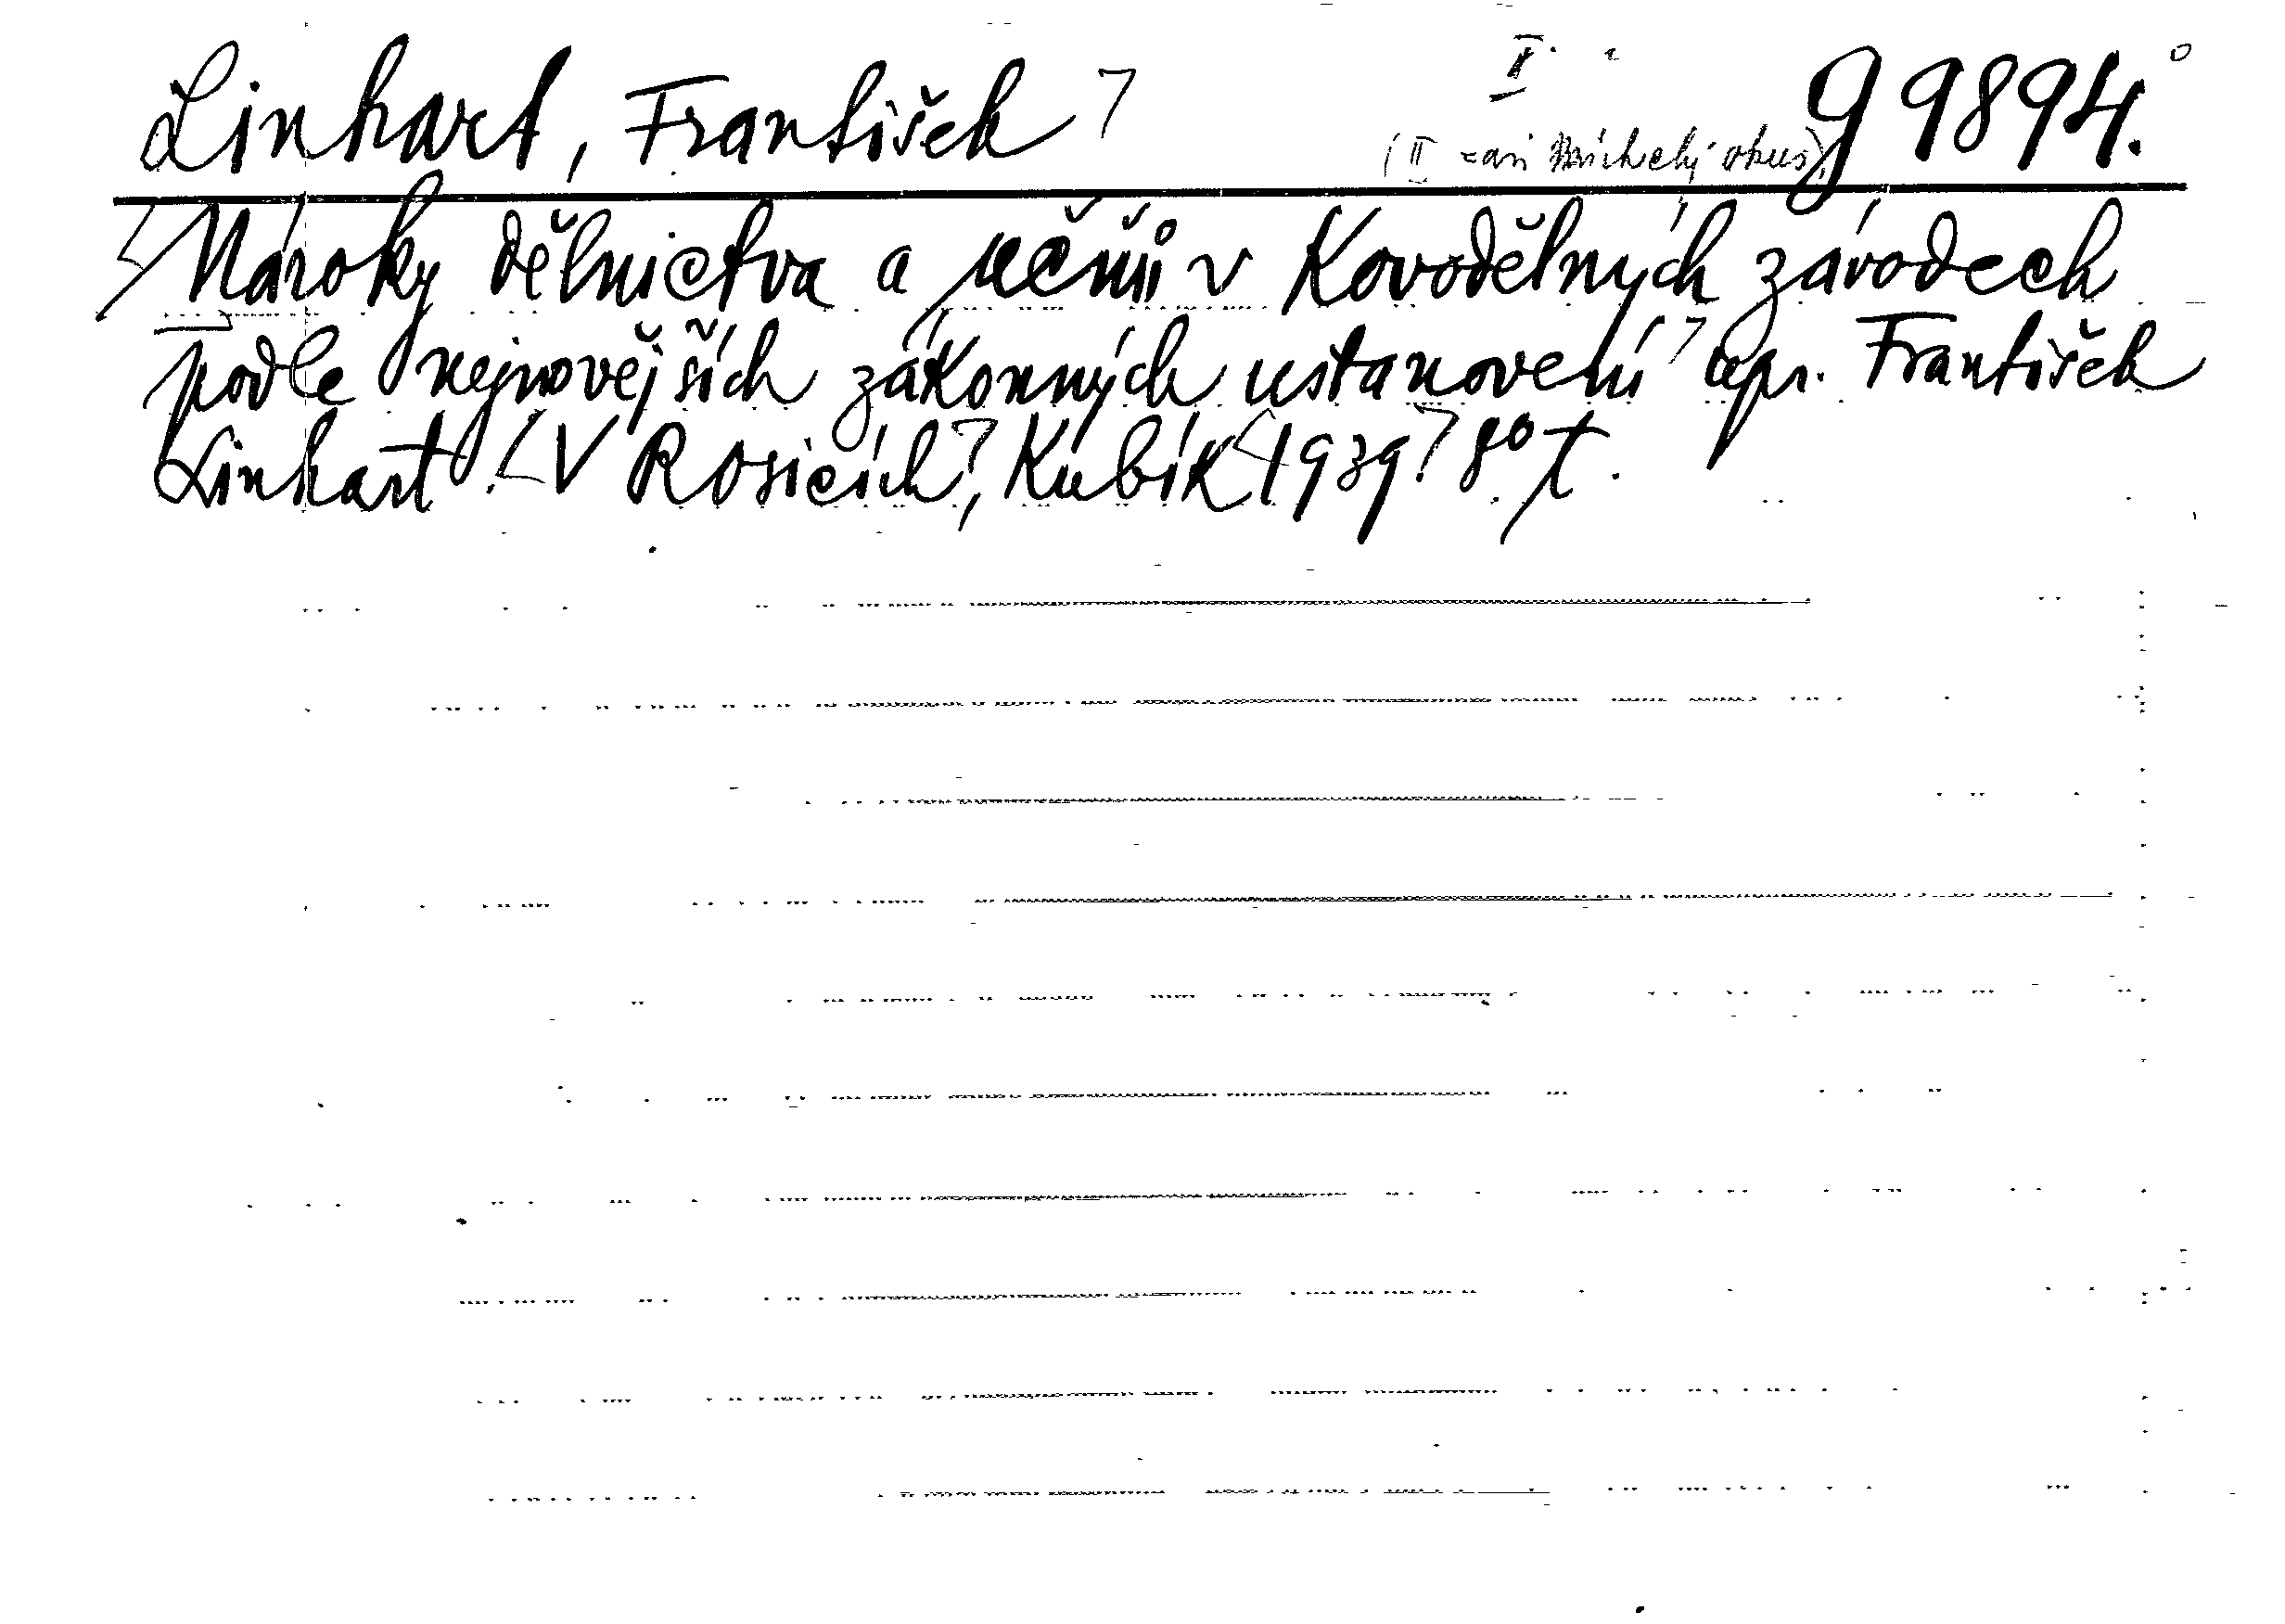 Linhart, František I. g 9894.
(II
Nároky dělnictva a učňů v kovodělných závodech
podle nejnovějších zákonných ustanovení upr. František
Linhart. V Rosicích, Kubík 1939 8° t.